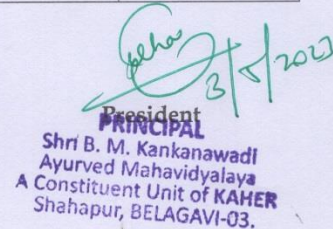 3/5/2023
President
PRINCIPAL
Shri B. M. Kankanawadi
Ayurved Mahavidyalaya
A Constituent Unit of KAHER
Shahapur, BELAGAVI-03.